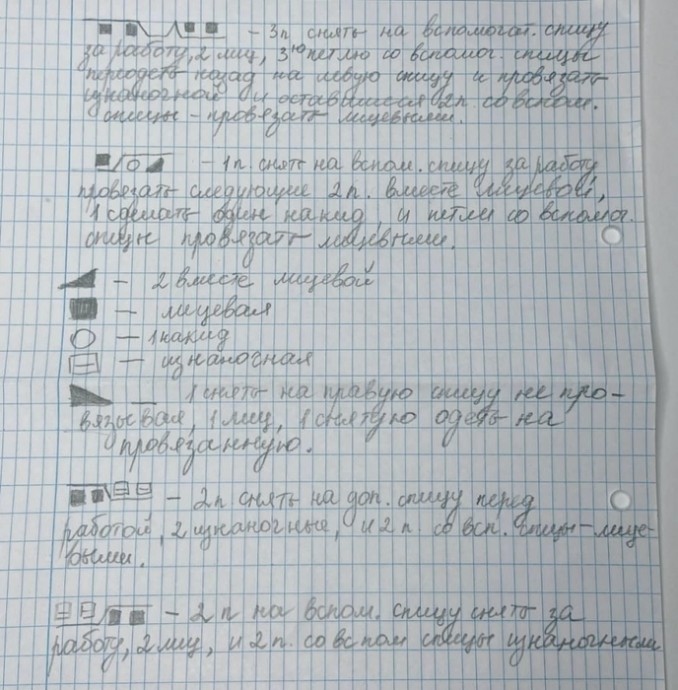 - 3п снять на вспомогат. спицу
за работу, 2 лиц, 3ю петлю со вспомог. спицы
переодеть назад на левую спицу и провязать
изнаночной и оставшиеся 2п. со вспом.
спицы - провязать лицевыми.
- 1п. снять на вспом. спицу за работу
провязать следующие 2п. вместе лицевой,
1 сделать один накид, и петли со вспомог.
спицы провязать лицевыми.
- 2 вместе лицевой
- лицевая
- 1 накид
- изнаночная
- 1 снять на правую спицу не про-
вязывая, 1 лиц, 1 снятую одеть на
провязанную.
- 2п снять на доп. спицу перед
работой, 2 изнаночные, и 2п. со всп. спицы - лице-
выми.
- 2п на вспом. спицу снять за
работу, 2 лиц, и 2п. со вспом спицы изнаночными